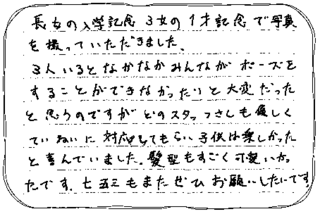 長女の入学記念 3女の1才記念で写真
を撮っていただきました。
3人いるとなかなかみんながポーズを
することができなかったりと大変だった
と思うのですがどのスタッフさんも優しく
ていねいに対応してもらい子供は楽しかった
と喜んでいました。髪型もすごく可愛いかっ
たです。七五三もまたぜひお願いしたいです